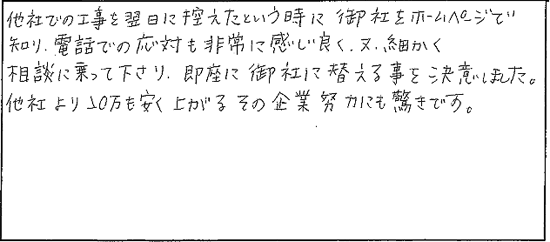 他社での工事を翌日に控えたという時に御社をホームページで
知り、電話での応対も非常に感じ良く、又、細かく
相談に乗って下さり、即座に御社に替える事を決意しました。
他社より10万も安く上がるその企業努力にも驚きです。